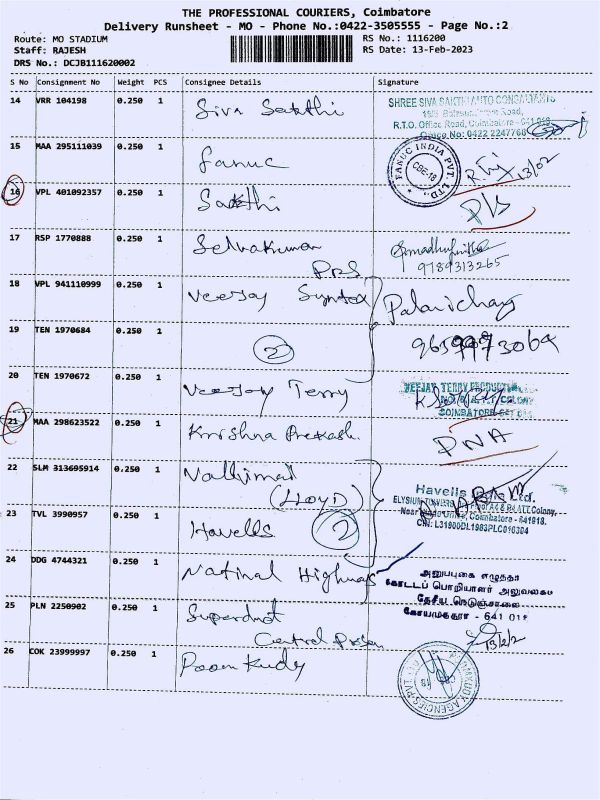 THE PROFESSIONAL COURIERS, Coimbatore
Delivery Runsheet - MO - Phone No.:0422-3505555 - Page No.:2
Route: MO STADIUM
RS No.: 1116200
Staff: RAJESH
RS Date: 13-Feb-2023
DRS No.: DCJB111620002
S No Consignment No Weight PCS Consignee Details Signature
14 VRR 104198 0.250 1 Siva Sakthi
SHREE SIVA SAKTHI AUTO CONSULTANTS
R.T.O. Office Road, Coimbatore - 641 018
Office No: 0422 2247760
15 MAA 295111039 0.250 1 Fanuc
FANUC INDIA PVT. LTD., CBE-18
13/02
16 VPL 401092357 0.250 1 Sakthi
17 RSP 1770888 0.250 1 Selvakumar
9789313265
PRS
18 VPL 941110999 0.250 1 Veejay Syntex
Palanichamy
19 TEN 1970684 0.250 1 2
20 TEN 1970672 0.250 1 Veejay Terry
VEEJAY TERRY PRODUCTS
COIMBATORE
21 MAA 298623522 0.250 1 Krishna Prakash
DNA
22 SLM 313695914 0.250 1 Nathimal
(LLOYD)
Havells Ltd.
23 TVL 3990957 0.250 1 Havells 2
Coimbatore - 641018.
CIN: L31900DL1983PLC016304
24 DDG 4744321 0.250 1 National Highways
கோட்டப் பொறியாளர் அலுவலகம்
தேசிய நெடுஞ்சாலை
கோயமுத்தூர் - 641 018
25 PLN 2250902 0.250 1 Superdnt
Central Prison
13/2/2
26 COK 23999997 0.250 1 Poom Kudy
AGENCIES PVT.